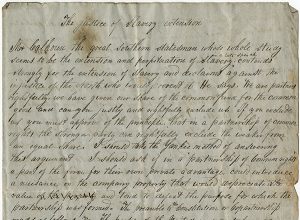 The justice of Slavery extension
Mr Calhoun the great Southern statesman whose whole study
seems to be the extension and perpetuation of Slavery, contends
strongly for the extension of Slavery and declaims against the
injustice of the north who would resist it. He says. We are partners
rightfully we have given our share of the common fund for the common
good and can you justly and rightfully exclude us if you exclude
us you must approve of the principle that in a partnership of common
rights the strong party can rightfully exclude the weaker from
an equal share. I should the Yankee method of answering
this argument I should ask if in a partnership of common rights
a part of the given for their own private advantage could introduce
a nuisance on the company property that would depreciate the
value of and tend to defeat the purpose for which the
partnership was formed. The preamble to Constitution of